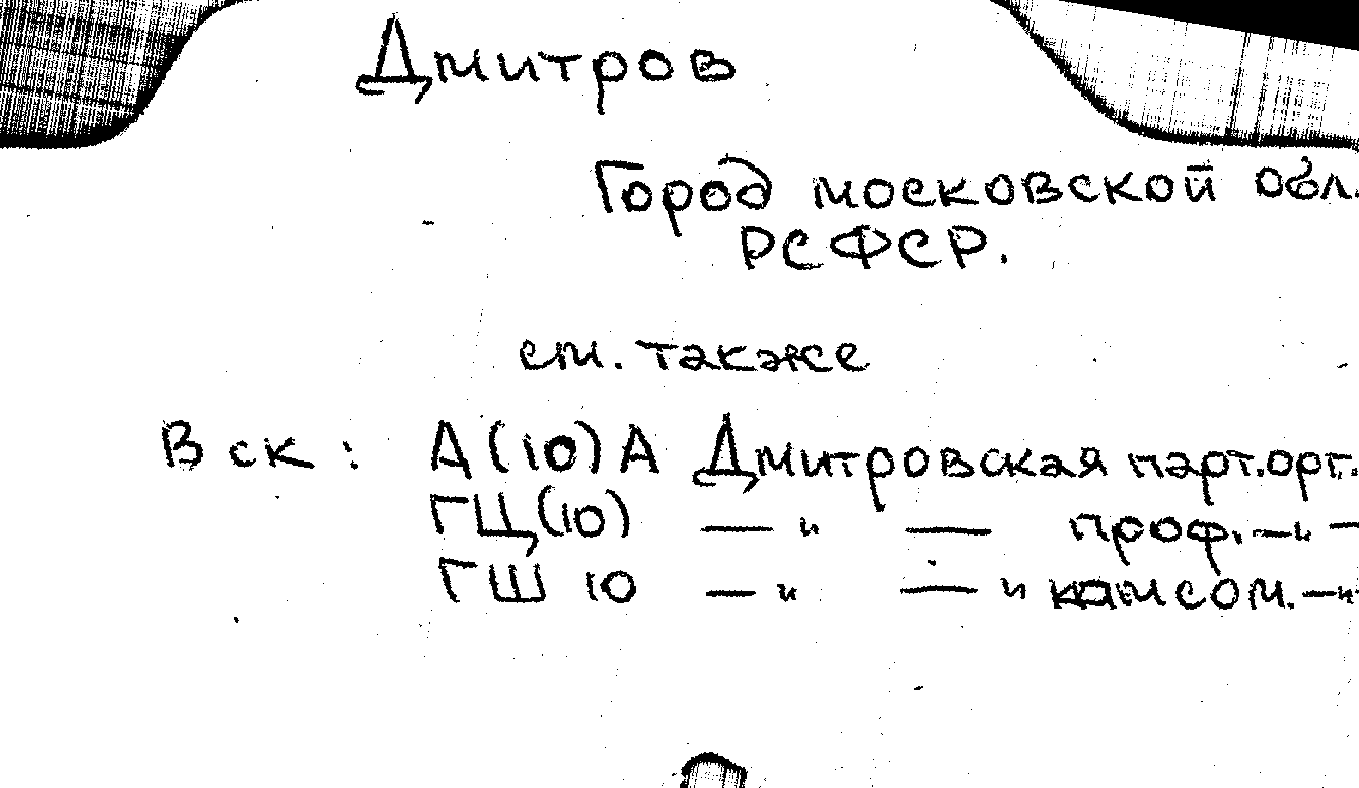 Дмитров
Город московской обл.
РСФСР.
см. также
В ск: А(10)А Дмитровская парт.орг.
ГЦ(10) — " — проф. — " —
ГШ 10 — " — " комсом. — " —